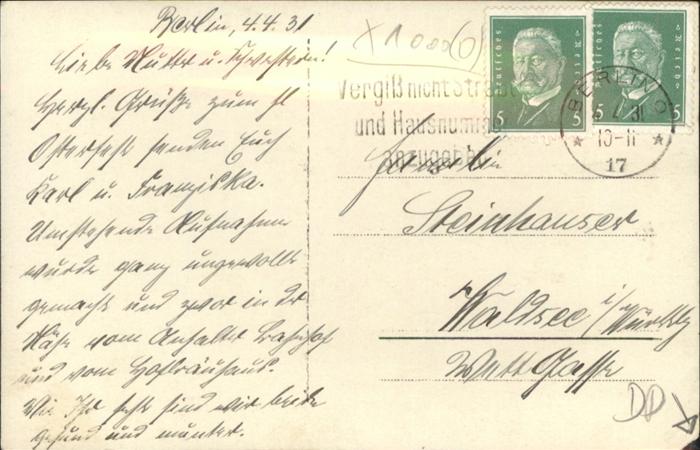 Berlin, 4.4.31
Liebe Mutter u. Schwestern!
Herzl. Grüße zum hl
Osterfeste senden Euch
Karl u. Franziska.
Umstehende Aufnahme
wurde ganz ungewollt
gemacht und zwar in der
Nähe vom Anhalter Bahnhof
und vom Hofbräuhaus.
Wie Ihr seht sind wir beide
gesund und munter.
X1000(0)
Deutsches Reich
5 5
Deutsches Reich
5 5
Vergiß nicht Straße
und Hausnummer
anzugeben
BERLIN
5 4 31
10-11
* *
17
Familie
Steinhauser
Waldsee i/Württbg
Gasse
DD